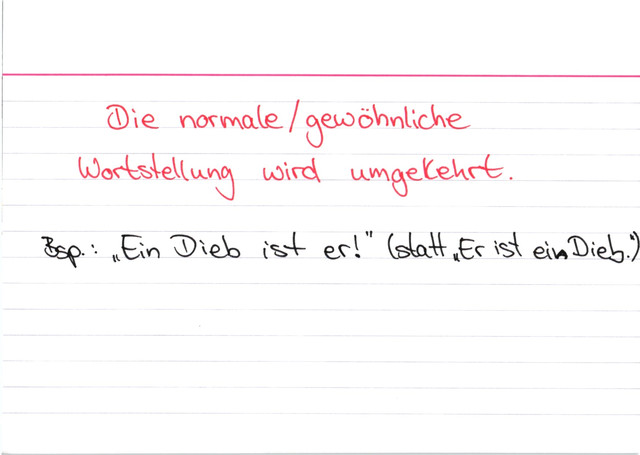 Die normale/gewöhnliche
Wortstellung wird umgekehrt.
Bsp.: „Ein Dieb ist er!" (statt „Er ist ein Dieb.")